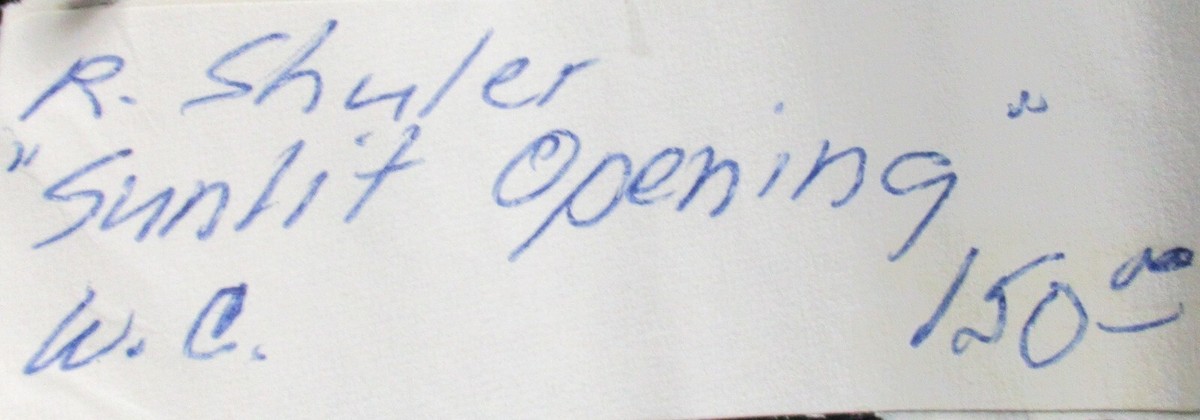 R. Shuler
"Sunlit Opening"
W.C. 150 00